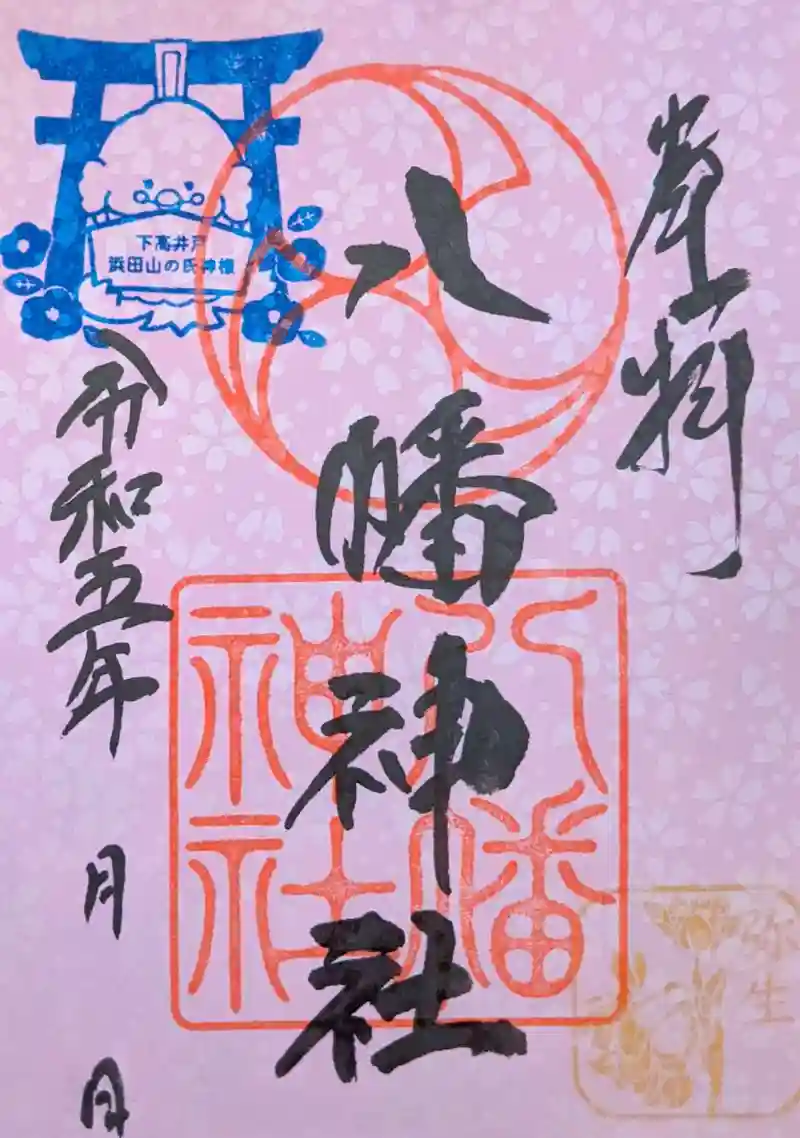 奉拝
八幡神社
令和五年
月
日
下高井戸
浜田山の氏神様
八幡
神社
弥生